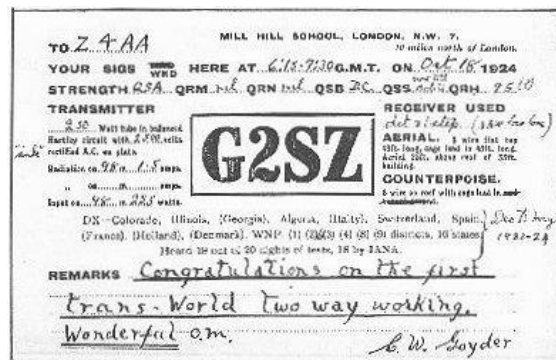 MILL HILL SCHOOL, LONDON, N.W. 7.
TO Z 4AA 10 miles north of London.
YOUR SIGS WKD HERE AT 6:15-7:30 G.M.T. ON Oct 18 1924
STRENGTH QRM nil QRN nil QSB D.C. QSS QRH 95
TRANSMITTER
250 Watt tube in balanced
Hartley circuit with 2500 volts
rectified A.C. on plate.
Radiation on 98 m 1.5 amps.
" on m amps.
Input on 98 m 225 watts.
G2SZ
RECEIVER USED
det & 1 step. (low loss)
AERIAL. 5 wire flat top
45ft. long, cage lead in 45ft. long.
Aerial 25ft. above roof of 55ft.
building.
COUNTERPOISE.
6 wire on roof with cage lead in
DX—Colorado, Illinois, (Georgia), Algeria, (Italy), Switzerland, Spain,
(France), (Holland), (Denmark). WNP. (1) (2) (3) (4) (8) (9) districts, 16 states
Heard 19 out of 20 nights of tests, 18 by 1ANA.
Dec to May
1923-24
REMARKS Congratulations on the first
trans-World two way working.
Wonderful O.M.
C. W. Goyder